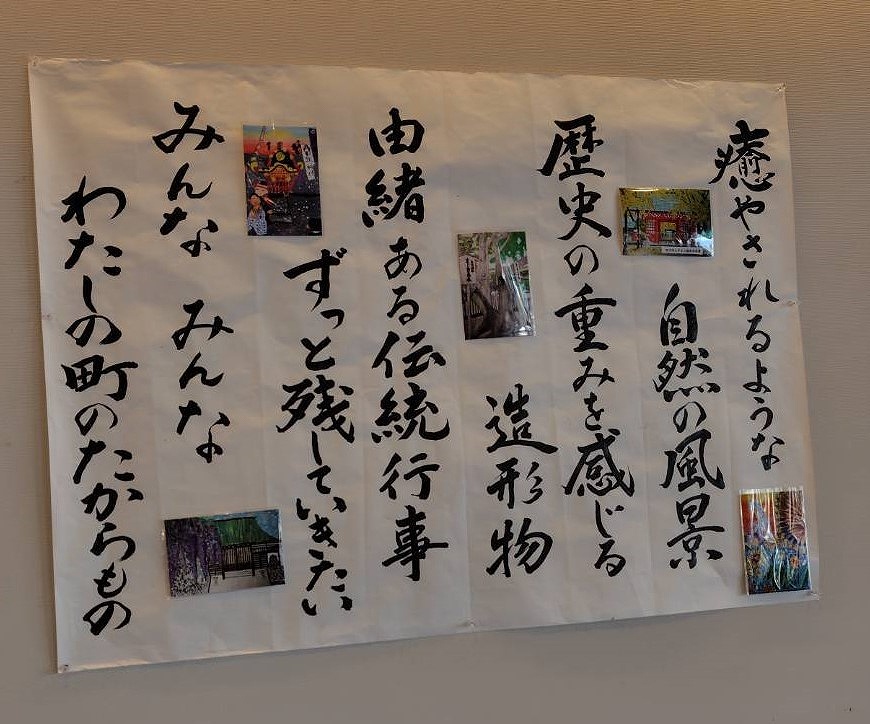 癒やされるような
自然の風景
歴史の重みを感じる
造形物
由緒ある伝統行事
ずっと残していきたい
みんな みんな
わたしの町のたからもの